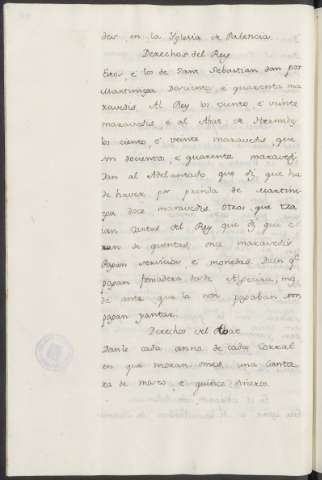 der en la Yglesia de Palencia.
Derechos del Rey
Estos, e los de Sant Sebastian dan por
Martiniega doscientos, e quarenta ma
ravedis. Al Rey los ciento, e veinte
maravedis e al Abat de Hermida
los ciento, e veinte maravedis, que
son docientos, e quarenta maravedis
dan al Adelantado que diz que ha
de haver por prenda de Martini
ega doce maravedis. Otrosi que tra
ian Cartas del Rey que diz que e
ran de quentas, once maravedis
Pagan servicios e monedas. Dicen qe
pagan fonsadera desde Algecira, mas
de ante que la non pagaban non
pagan yantar.
Derechos del Abat
Danle cada anno de cada Corral
en que moran omes, una Canta
ra de mosto, e quince dineros